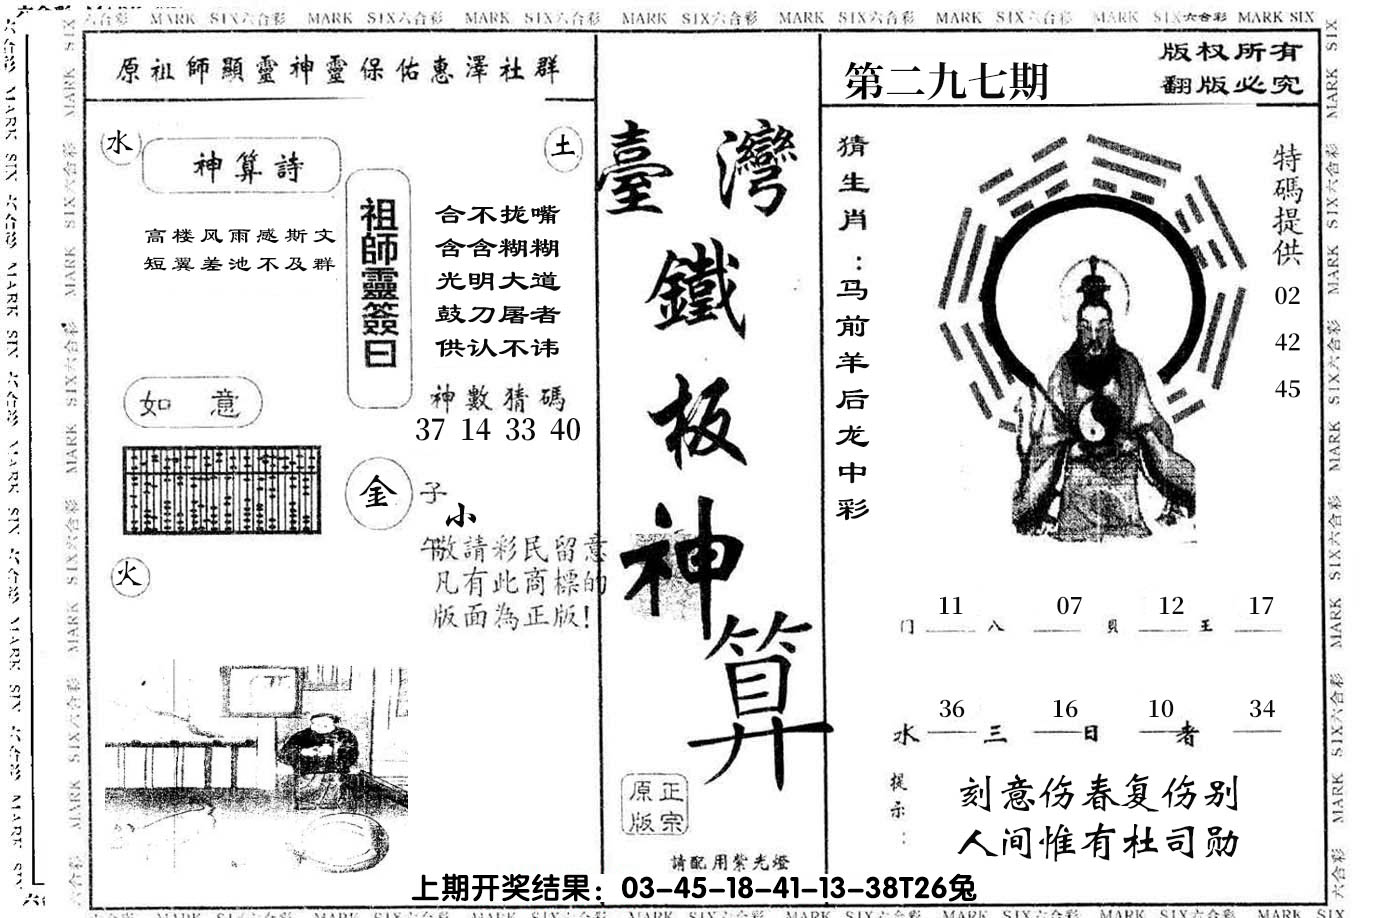 六合彩 MARK SIX六合彩 MARK SIX六合彩 MARK SIX六合彩 MARK SIX六合彩 MARK SIX六合彩 MARK SIX六合彩 MARK SIX六合彩 MARK SIX
原祖師顯靈神靈保佑惠澤社群
第二九七期
版权所有
翻版必究
水
神算詩
土
高楼风雨感斯文
短翼差池不及群
祖師靈簽曰
合不拢嘴
含含糊糊
光明大道
鼓刀屠者
供认不讳
如意
神數猜碼
37 14 33 40
金
子
小
午敬請彩民留意
凡有此商標的
版面為正版！
火
臺灣
鐵
板
神
算
正宗
原版
請配用紫光燈
猜生肖：马前羊后龙中彩
特碼提供
02
42
45
门 11 八 07 貝 12 王 17
水 36 三 16 日 10 者 34
提示：
刻意伤春复伤别
人间惟有杜司勋
上期开奖结果：03-45-18-41-13-38T26兔